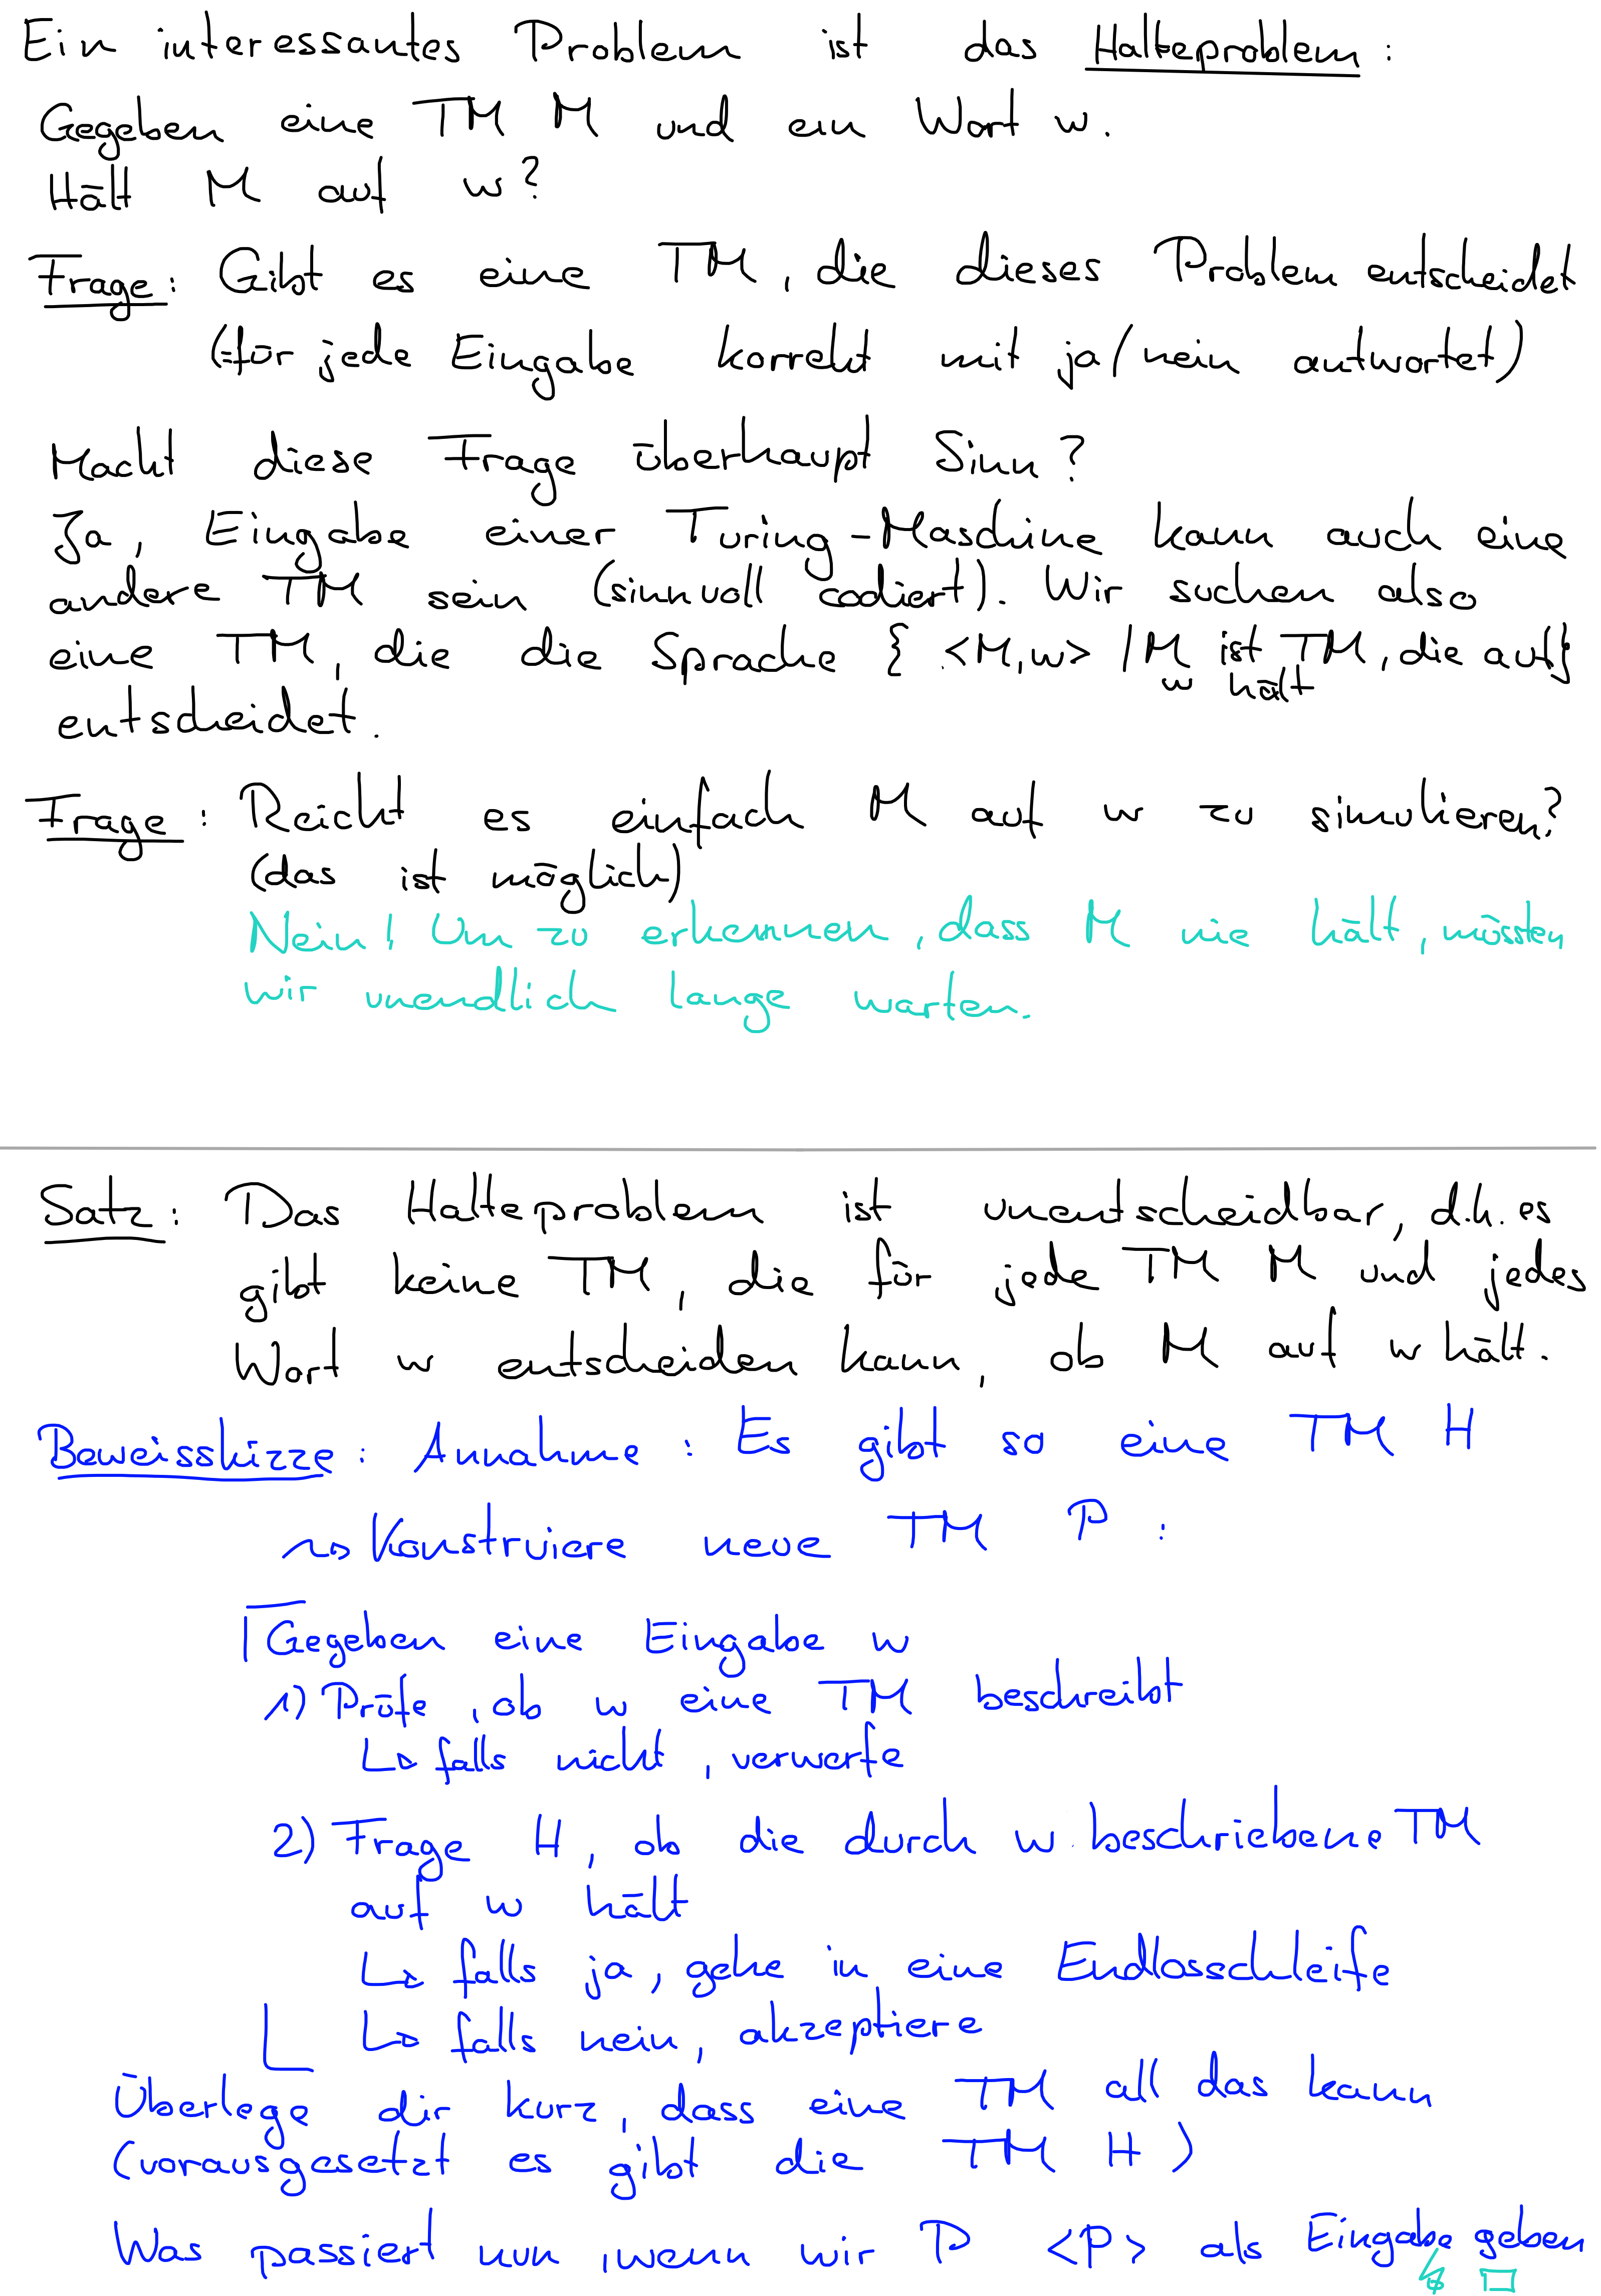 Ein interessantes Problem ist das Halteproblem:
Gegeben eine TM M und ein Wort w.
Hält M auf w?
Frage: Gibt es eine TM, die dieses Problem entscheidet
(=für jede Eingabe korrekt mit ja/nein antwortet)
Macht diese Frage überhaupt Sinn?
Ja, Eingabe einer Turing-Maschine kann auch eine
andere TM sein (sinnvoll codiert). Wir suchen also
eine TM, die die Sprache { <M,w> | M ist TM, die auf }
w hält
entscheidet.
Frage: Reicht es einfach M auf w zu simulieren?
(das ist möglich)
Nein! Um zu erkennen, dass M nie hält, müssten
wir unendlich lange warten.
Satz: Das Halteproblem ist unentscheidbar, d.h. es
gibt keine TM, die für jede TM M und jedes
Wort w entscheiden kann, ob M auf w hält.
Beweisskizze: Annahme: Es gibt so eine TM H
⇝ Konstruiere neue TM P:
Gegeben eine Eingabe w
1) Prüfe, ob w eine TM beschreibt
↳ falls nicht, verwerfe
2) Frage H, ob die durch w beschriebene TM
auf w hält
↳ falls ja, gehe in eine Endlosschleife
↳ falls nein, akzeptiere
Überlege dir kurz, dass eine TM all das kann
(vorausgesetzt es gibt die TM H)
Was passiert nun, wenn wir P <P> als Eingabe geben
↯ □